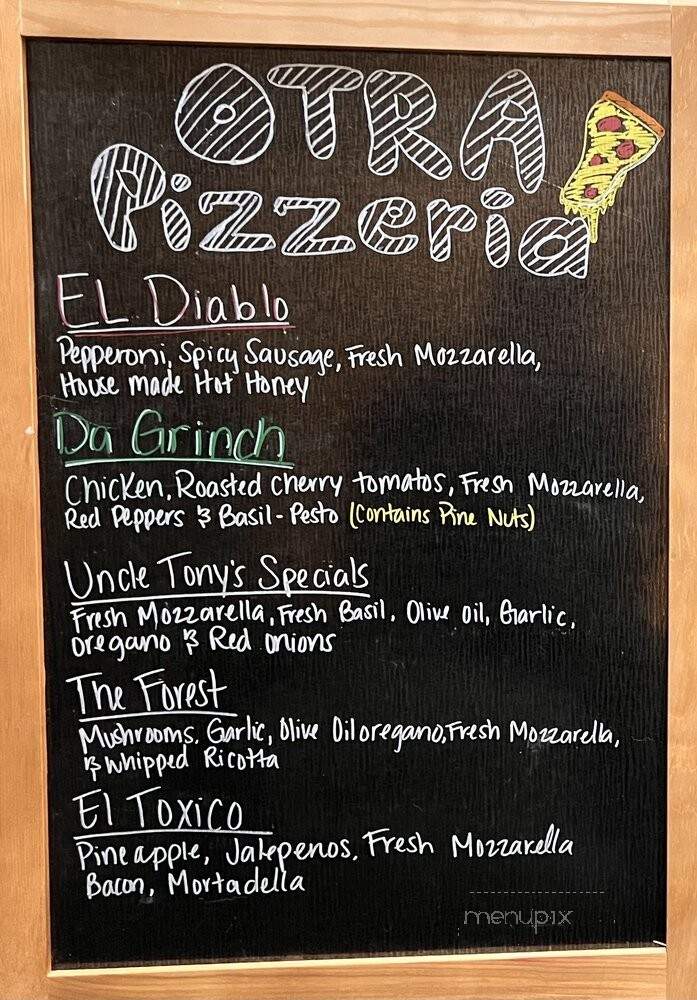 OTRA
Pizzeria
EL Diablo
Pepperoni, Spicy Sausage, Fresh Mozzarella,
House made Hot Honey
Da Grinch
Chicken, Roasted cherry tomatos, Fresh Mozzarella,
Red Peppers & Basil-Pesto (Contains Pine Nuts)
Uncle Tony's Specials
Fresh Mozzarella, Fresh Basil, Olive oil, Garlic,
oregano & Red onions
The Forest
Mushrooms, Garlic, Olive Oil oregano, Fresh Mozzarella,
& whipped Ricotta
El Toxico
Pineapple, Jalepenos, Fresh Mozzarella
Bacon, Mortadella
menupix